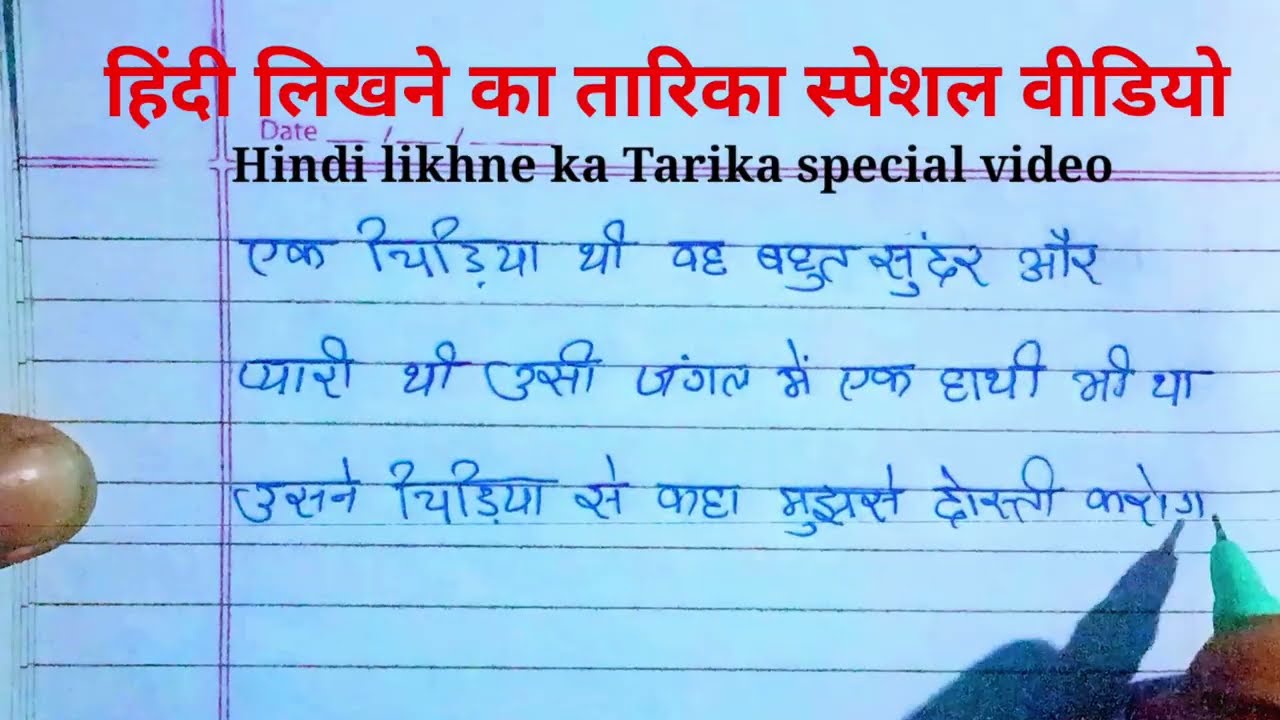 हिंदी लिखने का तारिका स्पेशल वीडियो
Date
Hindi likhne ka Tarika special video
एक चिड़िया थी वह बहुत सुंदर और
प्यारी थी उसी जंगल में एक हाथी भी था
उसने चिड़िया से कहा मुझसे दोस्ती करोग